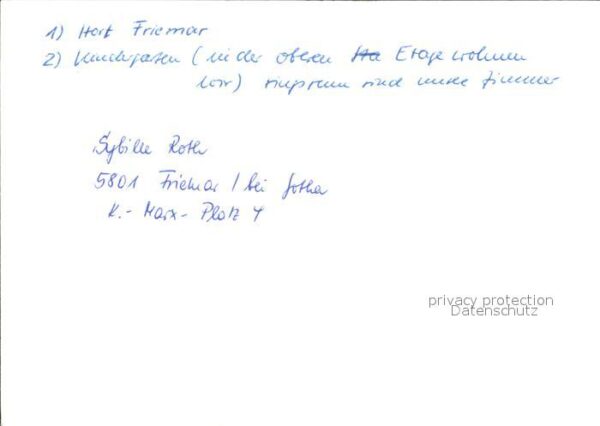 1) Hort Friemar
2) Kindergarten (in der oberen Etage wohnen
wir) ringsrum sind unsre Zimmer
Sybille Roth
5801 Friemar / bei Gotha
K.-Marx-Platz 4
privacy protection
Datenschutz